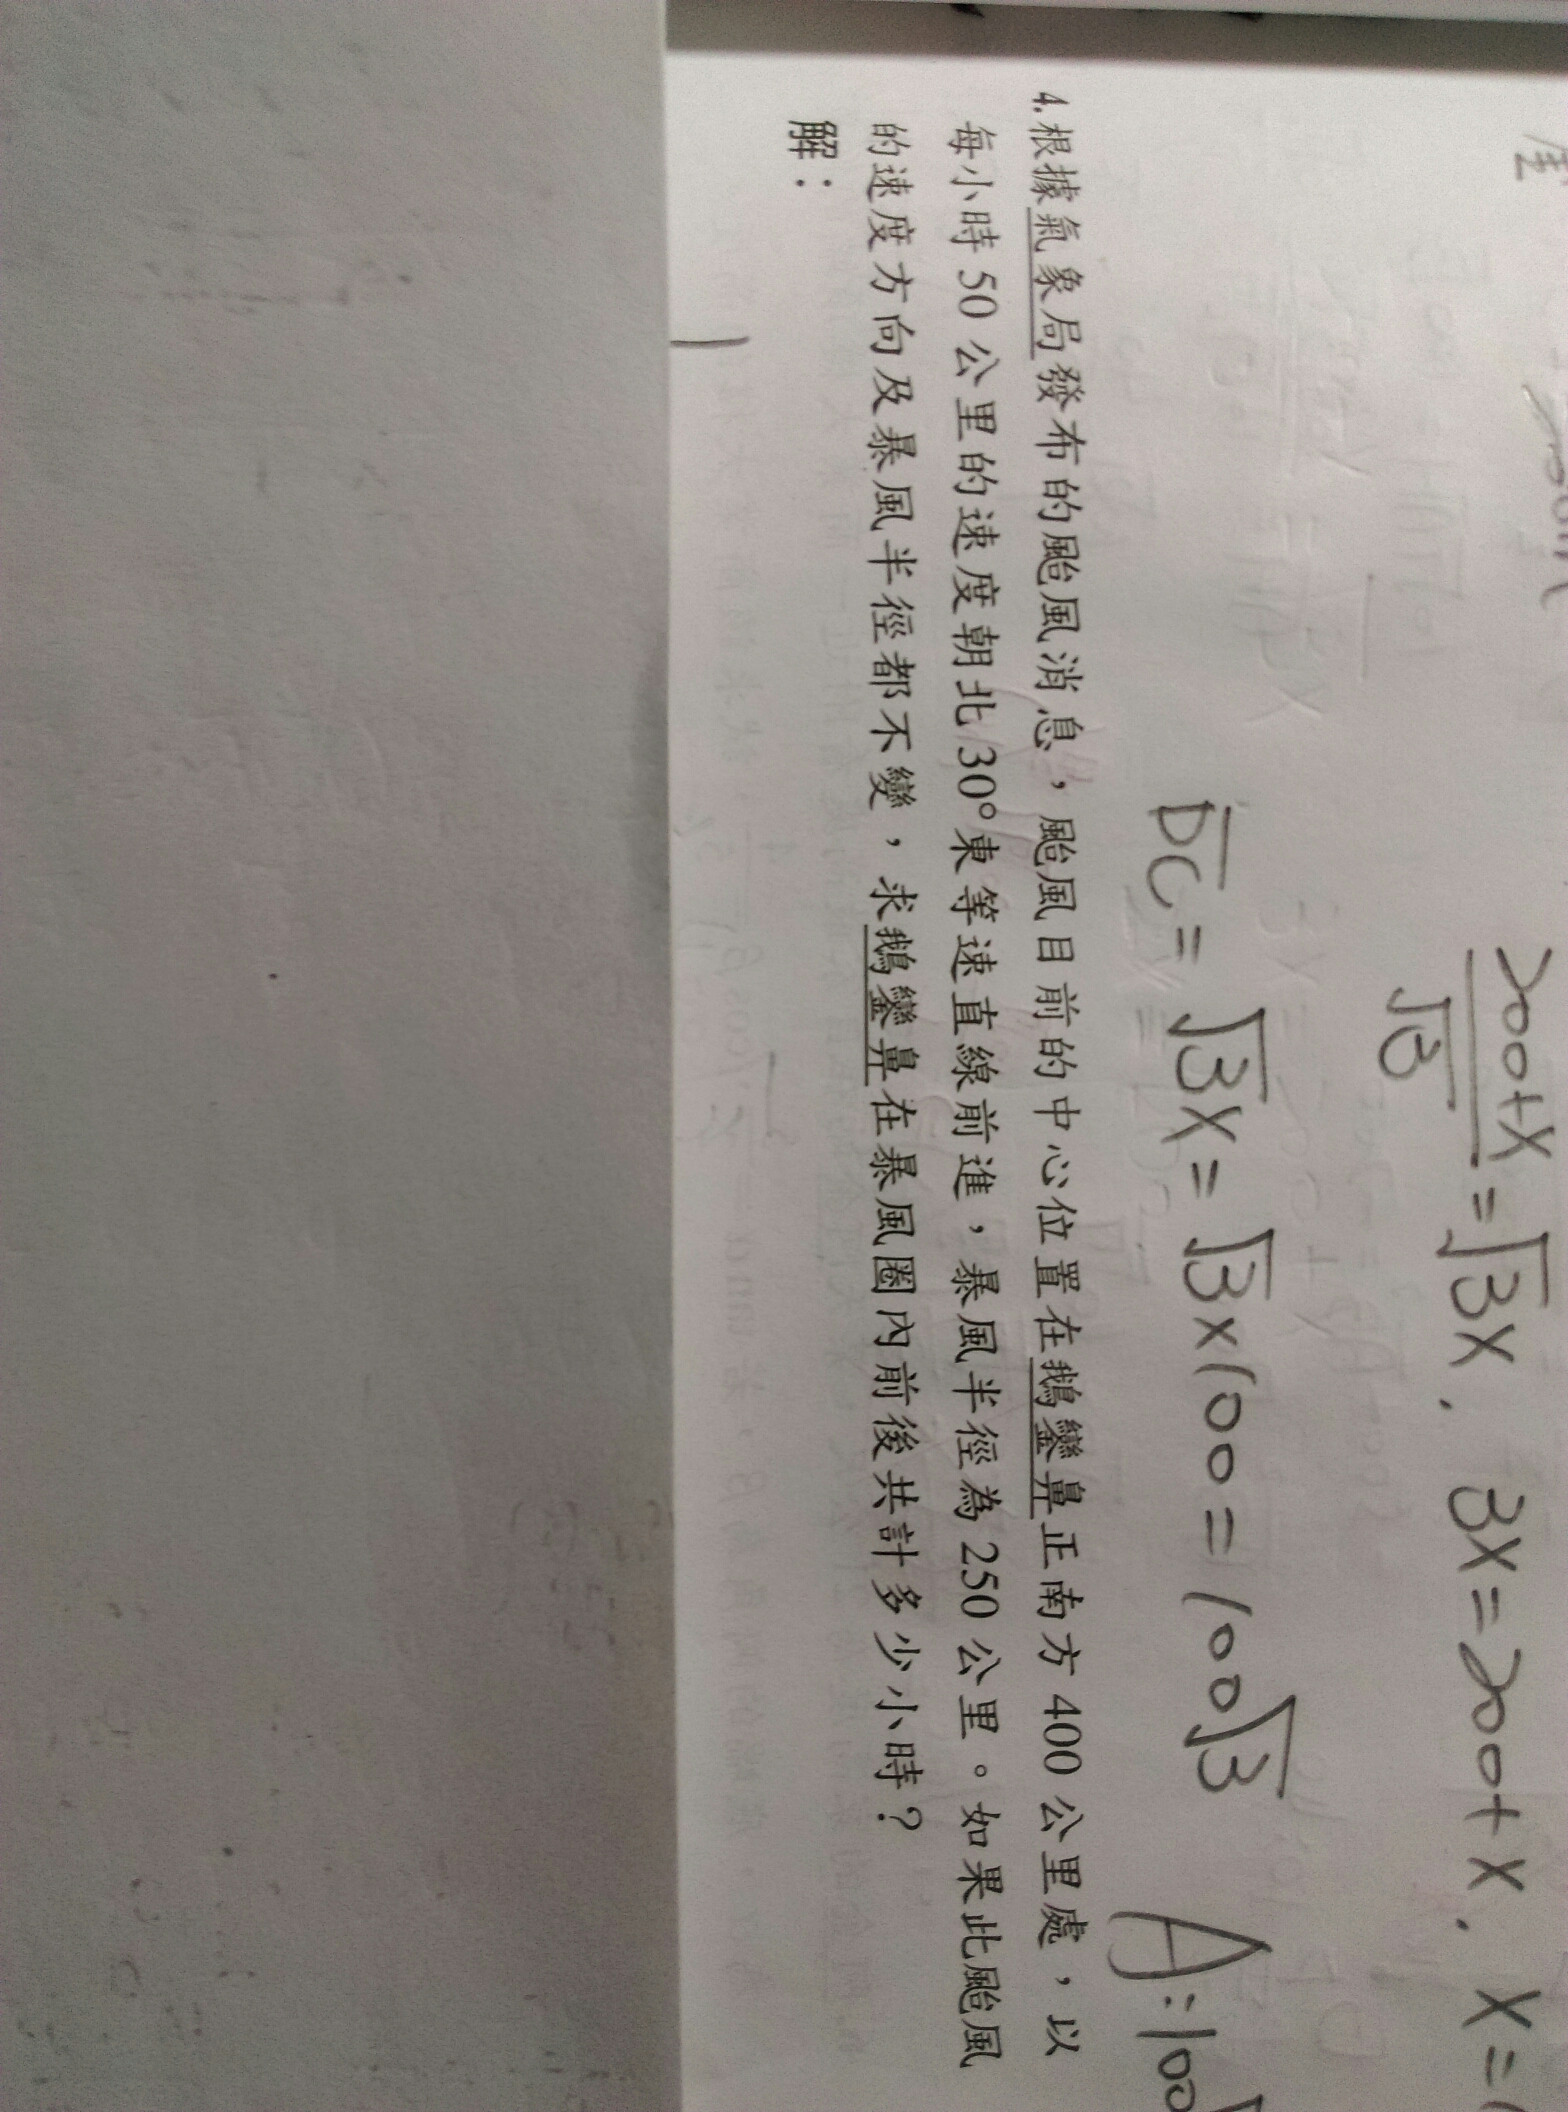 200+X/√3 = √3X . 3X=200+X . X=
DC = √3X = √3×100 = 100√3 A:100
4.根據氣象局發布的颱風消息，颱風目前的中心位置在鵝鑾鼻正南方400公里處，以
每小時50公里的速度朝北30°東等速直線前進，暴風半徑為250公里。如果此颱風
的速度方向及暴風半徑都不變，求鵝鑾鼻在暴風圈內前後共計多少小時？
解：